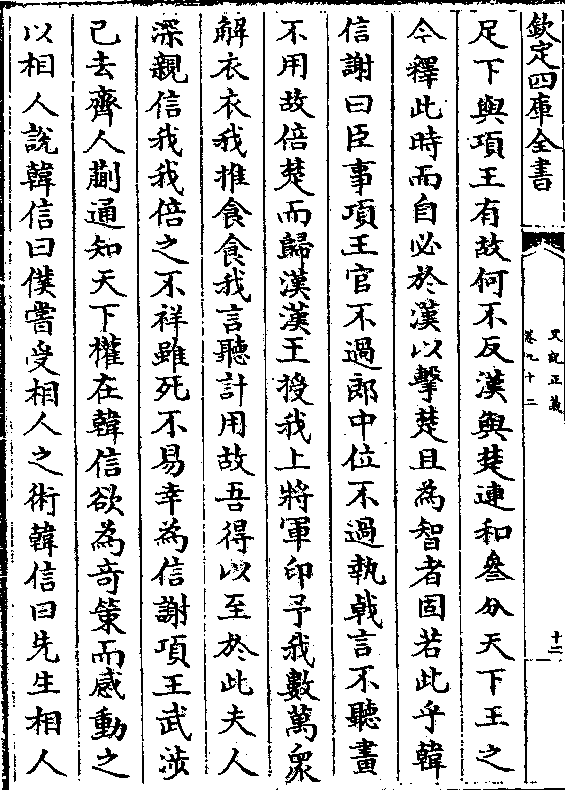 欽定四庫全書
史記正義
卷九十二
十二
足下與項王有故何不反漢與楚連和叄分天下王之
今釋此時而自必於漢以擊楚且為智者固若此乎韓
信謝曰臣事項王官不過郎中位不過執戟言不聽畫
不用故倍楚而歸漢漢王授我上將軍印予我數萬衆
解衣衣我推食食我言聽計用故吾得以至於此夫人
深親信我我倍之不祥雖死不易幸為信謝項王武涉
已去齊人蒯通知天下權在韓信欲為奇策而感動之
以相人說韓信曰僕嘗受相人之術韓信曰先生相人